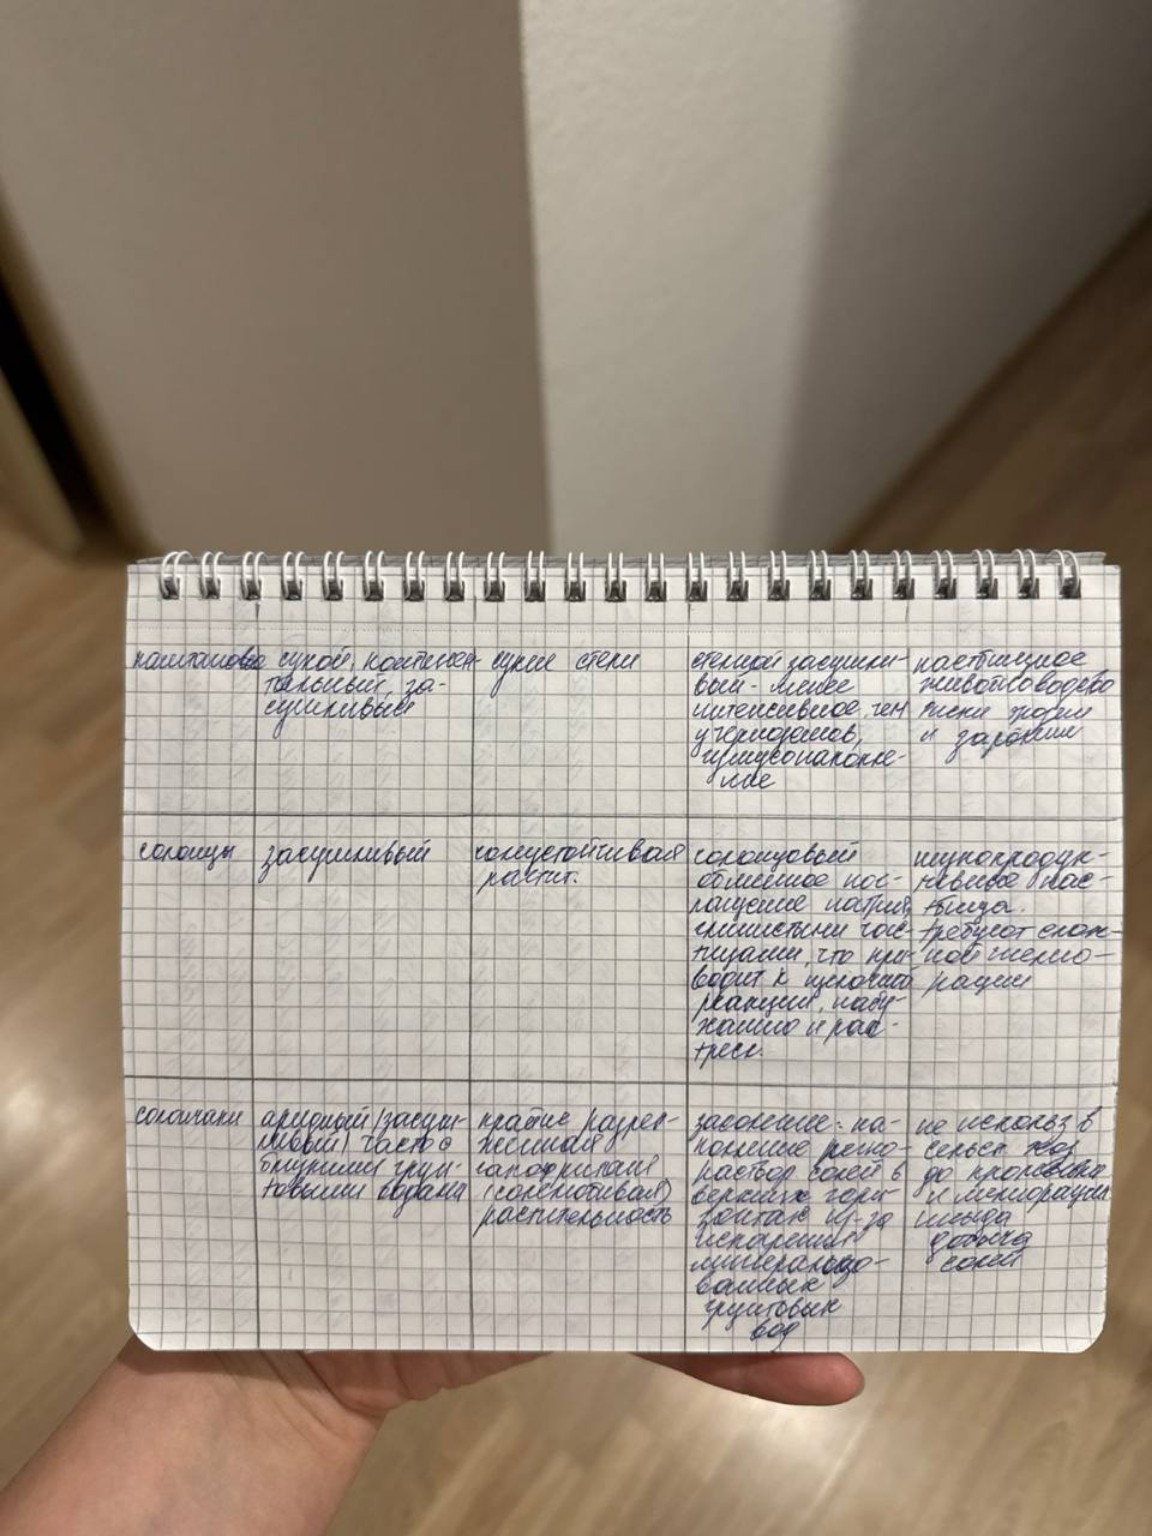 каштановые
сухой, континен-
тальный, за-
сушливый
сухие степи
степной засушли-
вый - менее
интенсивное, чем
у черноземов,
гумусонакопле-
ние
пастбищное
животноводство
риски эрозии
и
солонцы
засушливый
солеустойчивая
растит.
солонцовый
обменное пог-
лащение натрия
глинистыми час-
тицами, что при-
водит к щелочной
реакции, набу-
ханию и рас-
треск.
низкопродук-
тивные пас-
тбища.
требуют слож-
ной мелио-
рации
солончаки
аридный/засуш-
ливый/часто с
близкими грун-
товыми водами
крайне разреж-
женная
галофитная
(солелюбивая)
растительность
засоление: на-
копление легко-
раствор солей в
верхних гори-
зонтах из-за
испарения
минерализо-
ванных
грунтовых
вод
не использ в
сельск хоз
до промывки
и мелиорации
иногда
добыча
солей